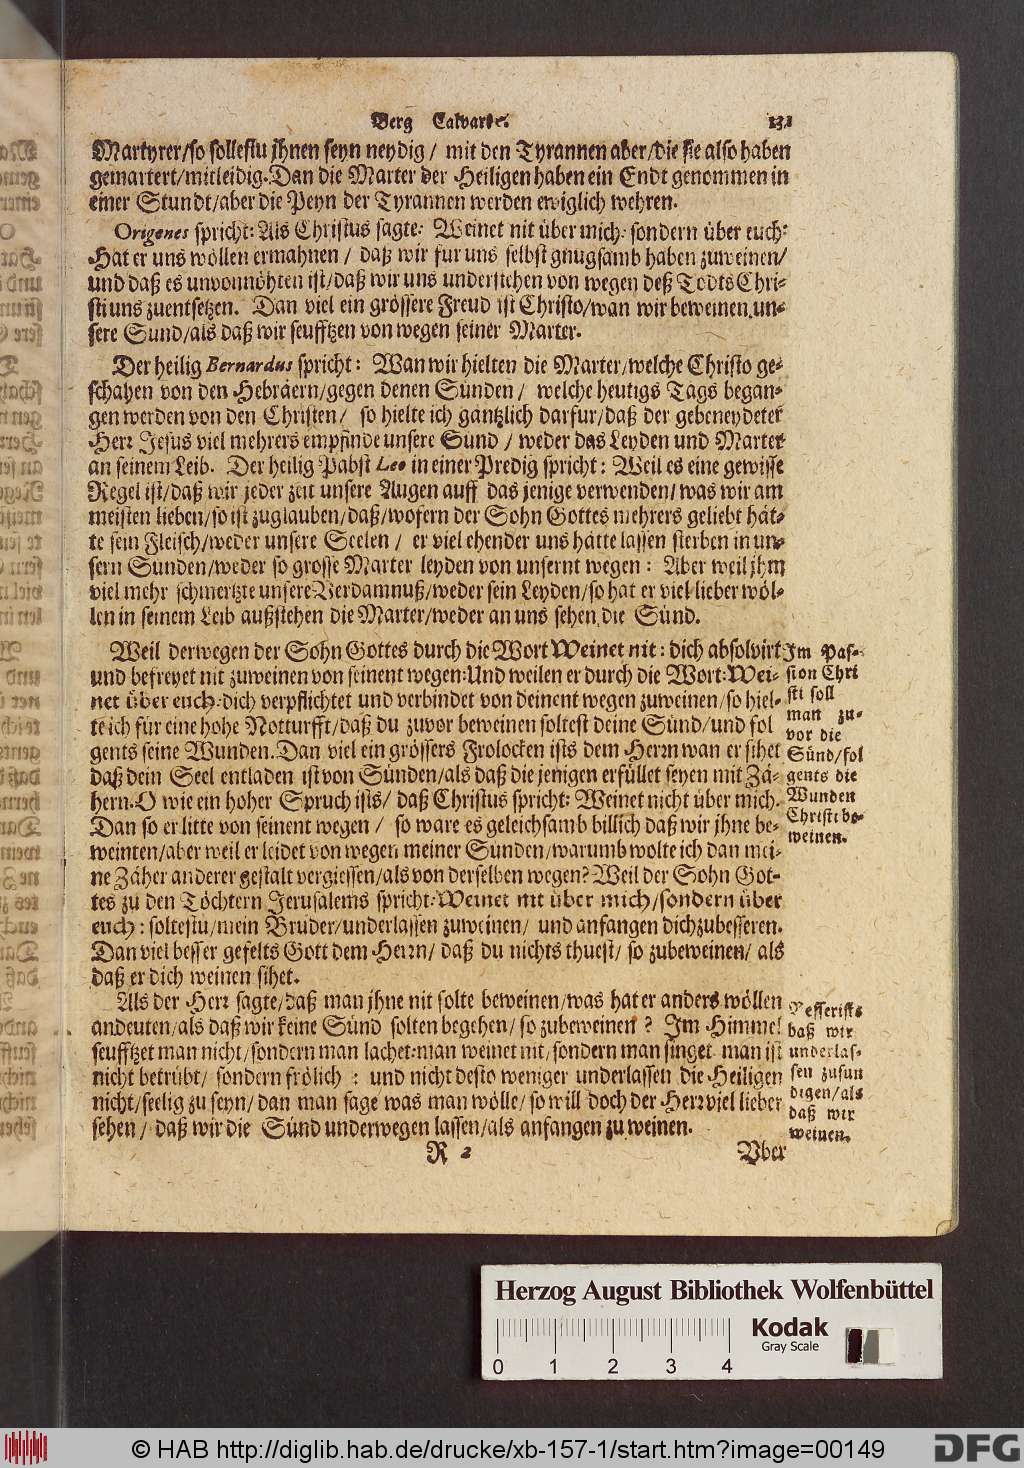 Berg Calvarie. 131
Martyrer/so sollestu jhnen seyn neydig/ mit den Tyrannen aber/die sie also haben
gemartert/mitleidig. Dan die Marter der Heiligen haben ein Endt genommen in
einer Stundt/aber die Peyn der Tyrannen werden ewiglich wehren.
Origenes spricht: Als Christus sagte: Weinet nit über mich: sondern über euch:
Hat er uns wöllen ermahnen/ daß wir für uns selbst gnugsamb haben zuweinen/
und daß es unvonnöhten ist/daß wir uns understehen von wegen deß Todts Chri-
sti uns zuentsetzen. Dan viel ein grössere Freud ist Christo/wan wir beweinen un-
sere Sünd/als daß wir seufftzen von wegen seiner Marter.
Der heilig Bernardus spricht: Wan wir hielten die Marter/welche Christo ge-
schahen von den Hebräern/gegen denen Sünden/ welche heutigs Tags began-
gen werden von den Christen/ so hielte ich gäntzlich darfur/daß der gebeneydeter
Herr Jesus viel mehrers empfinde unsere Sünd/ weder das Leyden und Marter
an seinem Leib. Der heilig Pabst Leo in einer Predig spricht: Weil es eine gewisse
Regel ist/daß wir jeder zeit unsere Augen auff das jenige verwenden/was wir am
meisten lieben/so ist zuglauben/daß/wofern der Sohn Gottes mehrers geliebt hät-
te sein Fleisch/weder unsere Seelen/ er viel ehender uns hätte lassen sterben in un-
sern Sünden/weder so grosse Marter leyden von unsernt wegen: Aber weil jhm
viel mehr schmertzte unsere Verdamnuß/weder sein Leyden/so hat er viel lieber wöl-
len in seinem Leib außstehen die Marter/weder an uns sehen die Sünd.
Weil derwegen der Sohn Gottes durch die Wort Weinet nit: dich absolvirt
und befreyet nit zuweinen von seinent wegen: Und weilen er durch die Wort: Wei-
net über euch: dich verpflichtet und verbindet von deinent wegen zuweinen/so hiel-
te ich für eine hohe Notturfft/daß du zuvor beweinen soltest deine Sünd/und fol
gents seine Wunden. Dan viel ein grössers Frolocken ists dem Herrn wan er sihet
daß dein Seel entladen ist von Sünden/als daß die jenigen erfüllet seyen mit Zä-
hern. O wie ein hoher Spruch ists/ daß Christus spricht: Weinet nicht über mich.
Dan so er litte von seinent wegen/ so ware es geleichsamb billich daß wir jhne be-
weinten/aber weil er leidet von wegen meiner Sünden/warumb wolte ich dan mei-
ne Zäher anderer gestalt vergiessen/als von derselben wegen? Weil der Sohn Got-
tes zu den Töchtern Jerusalems spricht: Weinet nit über mich/sondern über
euch: soltestu/mein Bruder/underlassen zuweinen/ und anfangen dich zubesseren.
Dan viel besser gefelts Gott dem Herrn/ daß du nichts thuest/ so zubeweinen/ als
daß er dich weinen sihet.
Als der Herr sagte/daß man jhne nit solte beweinen/was hat er anders wöllen
andeuten/als daß wir keine Sünd solten begehen/so zubeweinen? Im Himmel
seufftzet man nicht/sondern man lachet: man weinet nit/sondern man singet: man ist
nicht betrübt/ sondern frölich: und nicht desto weniger underlassen die Heiligen
nicht/seelig zu seyn/dan man sage was man wölle/so will doch der Herr viel lieber
sehen/ daß wir die Sünd underwegen lassen/als anfangen zu weinen.
R 2 Uber
Im Pas-
sion Chri
sti soll
man zu-
vor die
Sünd/fol
gents die
Wunden
Christi be-
weinen.
Besser ists
daß wir
underlas-
sen zusün
digen/als
daß wir
weinen.
Herzog August Bibliothek Wolfenbüttel
Kodak
Gray Scale
0 1 2 3 4
© HAB http://diglib.hab.de/drucke/xb-157-1/start.htm?image=00149
DFG